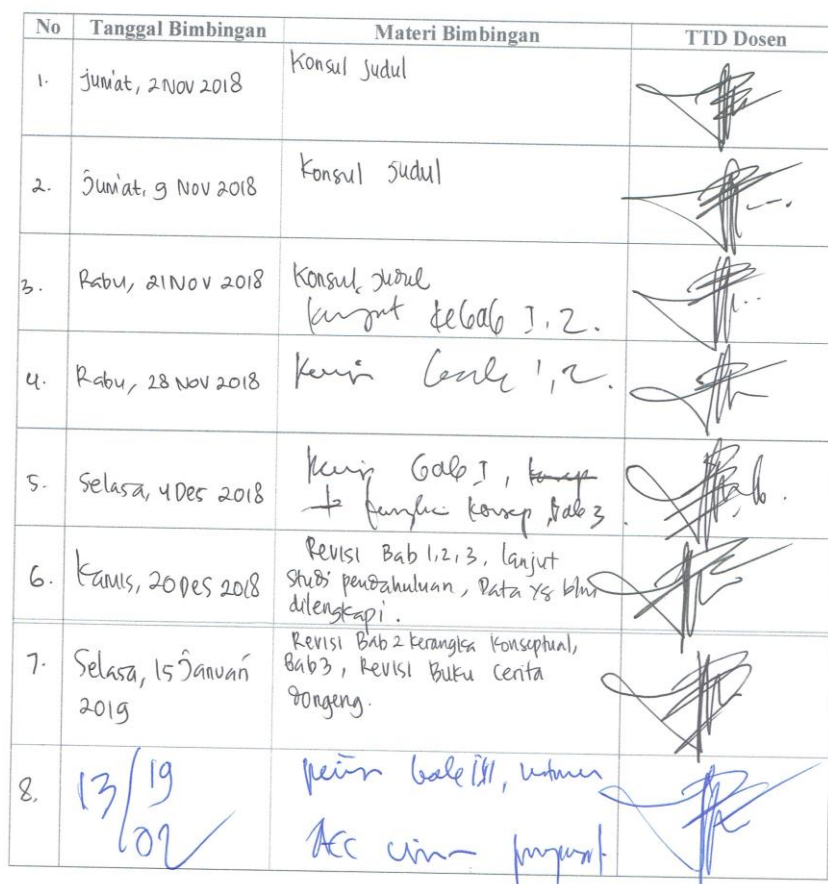 No Tanggal Bimbingan Materi Bimbingan TTD Dosen
1. Jum'at, 2 Nov 2018 Konsul Judul
2. Jum'at, 9 Nov 2018 Konsul Judul
3. Rabu, 21 Nov 2018 Konsul Judul
lanjut ke bab I, 2.
4. Rabu, 28 Nov 2018 bab 1, 2.
5. Selasa, 4 Des 2018 bab I,
+ konsep, bab 3
6. Kamis, 20 Des 2018 Revisi Bab 1,2,3, lanjut
studi pendahuluan, Data yg blm
dilengkapi.
7. Selasa, 15 Januari Revisi Bab 2 Kerangka Konseptual,
2019 Bab 3, Revisi Buku Cerita
dongeng.
8. 13/19
02
ACC